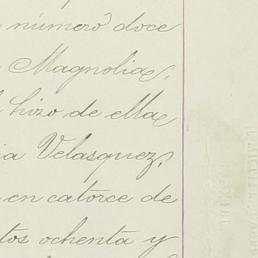 número doce
Magnolia,
hizo de ella
Velasquez,
en catorce de
ochenta y